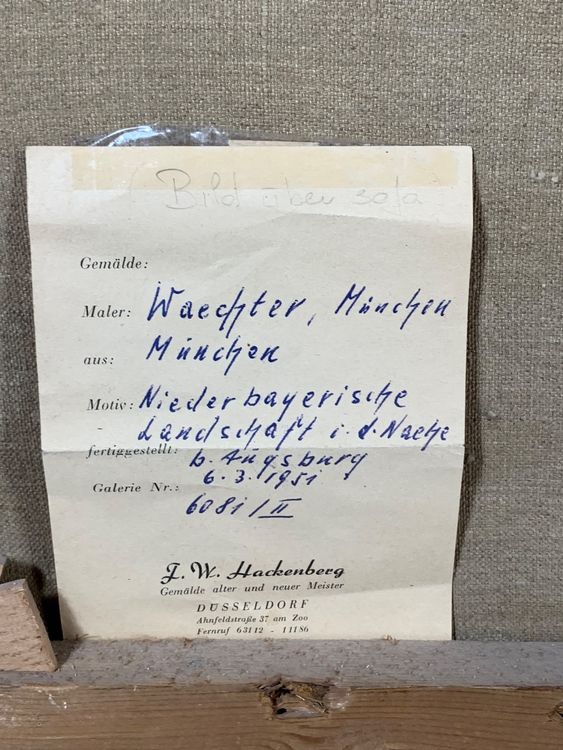 Bild über sofa
Gemälde:
Maler: Waechter, München
aus: München
Motiv: Niederbayerische
Landschaft i. d. Naehe
fertiggestellt: b. Augsburg
6.3.1951
Galerie Nr.:
6081/II
J. W. Hackenberg
Gemälde alter und neuer Meister
DÜSSELDORF
Ahnfeldstraße 37 am Zoo
Fernruf 63112 - 11186